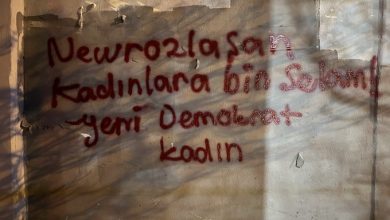 Newrozlaşan
Kadınlara bin Selam!
yeni Demokrat
kadın